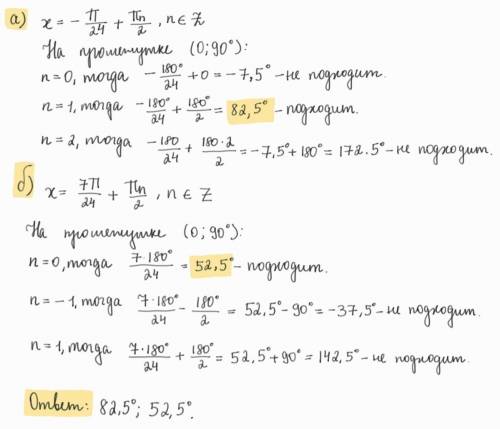 а) x = -π/24 + πn/2, n ∈ Z
На промежутке (0; 90°):
n=0, тогда -180°/24 + 0 = -7,5° - не подходит.
n=1, тогда -180°/24 + 180°/2 = 82,5° - подходит.
n=2, тогда -180/24 + 180·2/2 = -7,5° + 180° = 172.5° - не подходит.
б) x = 7π/24 + πn/2, n ∈ Z
На промежутке (0; 90°):
n=0, тогда 7·180°/24 = 52,5° - подходит.
n=-1, тогда 7·180°/24 - 180°/2 = 52,5° - 90° = -37,5° - не подходит.
n=1, тогда 7·180°/24 + 180°/2 = 52,5° + 90° = 142,5° - не подходит.
Ответ: 82,5°; 52,5°.